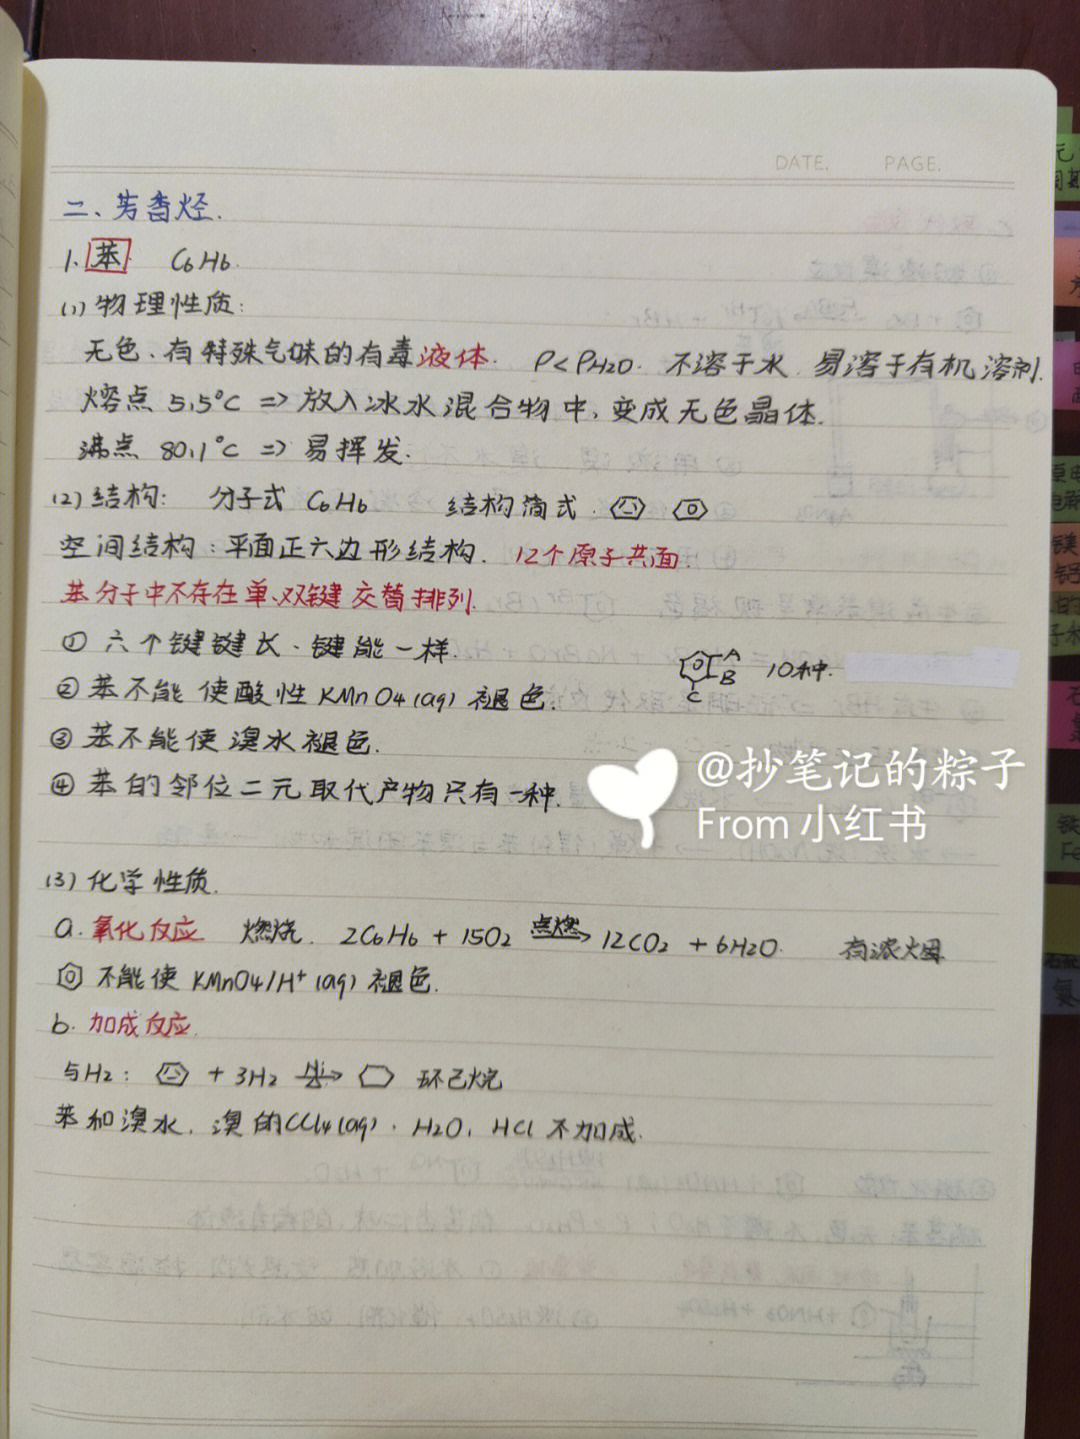 DATE. PAGE.
二、芳香烃.
1. 苯 C6H6.
(1) 物理性质:
无色、有特殊气味的有毒液体. ρ<ρH2O. 不溶于水. 易溶于有机溶剂.
熔点 5.5°C => 放入冰水混合物中, 变成无色晶体.
沸点 80.1°C => 易挥发.
(2) 结构: 分子式 C6H6 结构简式.
空间结构: 平面正六边形结构. 12个原子共面.
苯分子中不存在单、双键交替排列.
① 六个键键长、键能一样.
A
B
C
10种.
② 苯不能使酸性 KMnO4(aq) 褪色.
③ 苯不能使溴水褪色.
④ 苯的邻位二元取代产物只有一种.
@抄笔记的粽子
From 小红书
(3) 化学性质.
a. 氧化反应 燃烧. 2C6H6 + 15O2 点燃→ 12CO2 + 6H2O. 有浓烟
不能使 KMnO4/H+ (aq) 褪色.
b. 加成反应.
与H2: + 3H2 Ni/△→ 环己烷
苯和溴水、溴的CCl4(aq)、H2O、HCl 不加成.